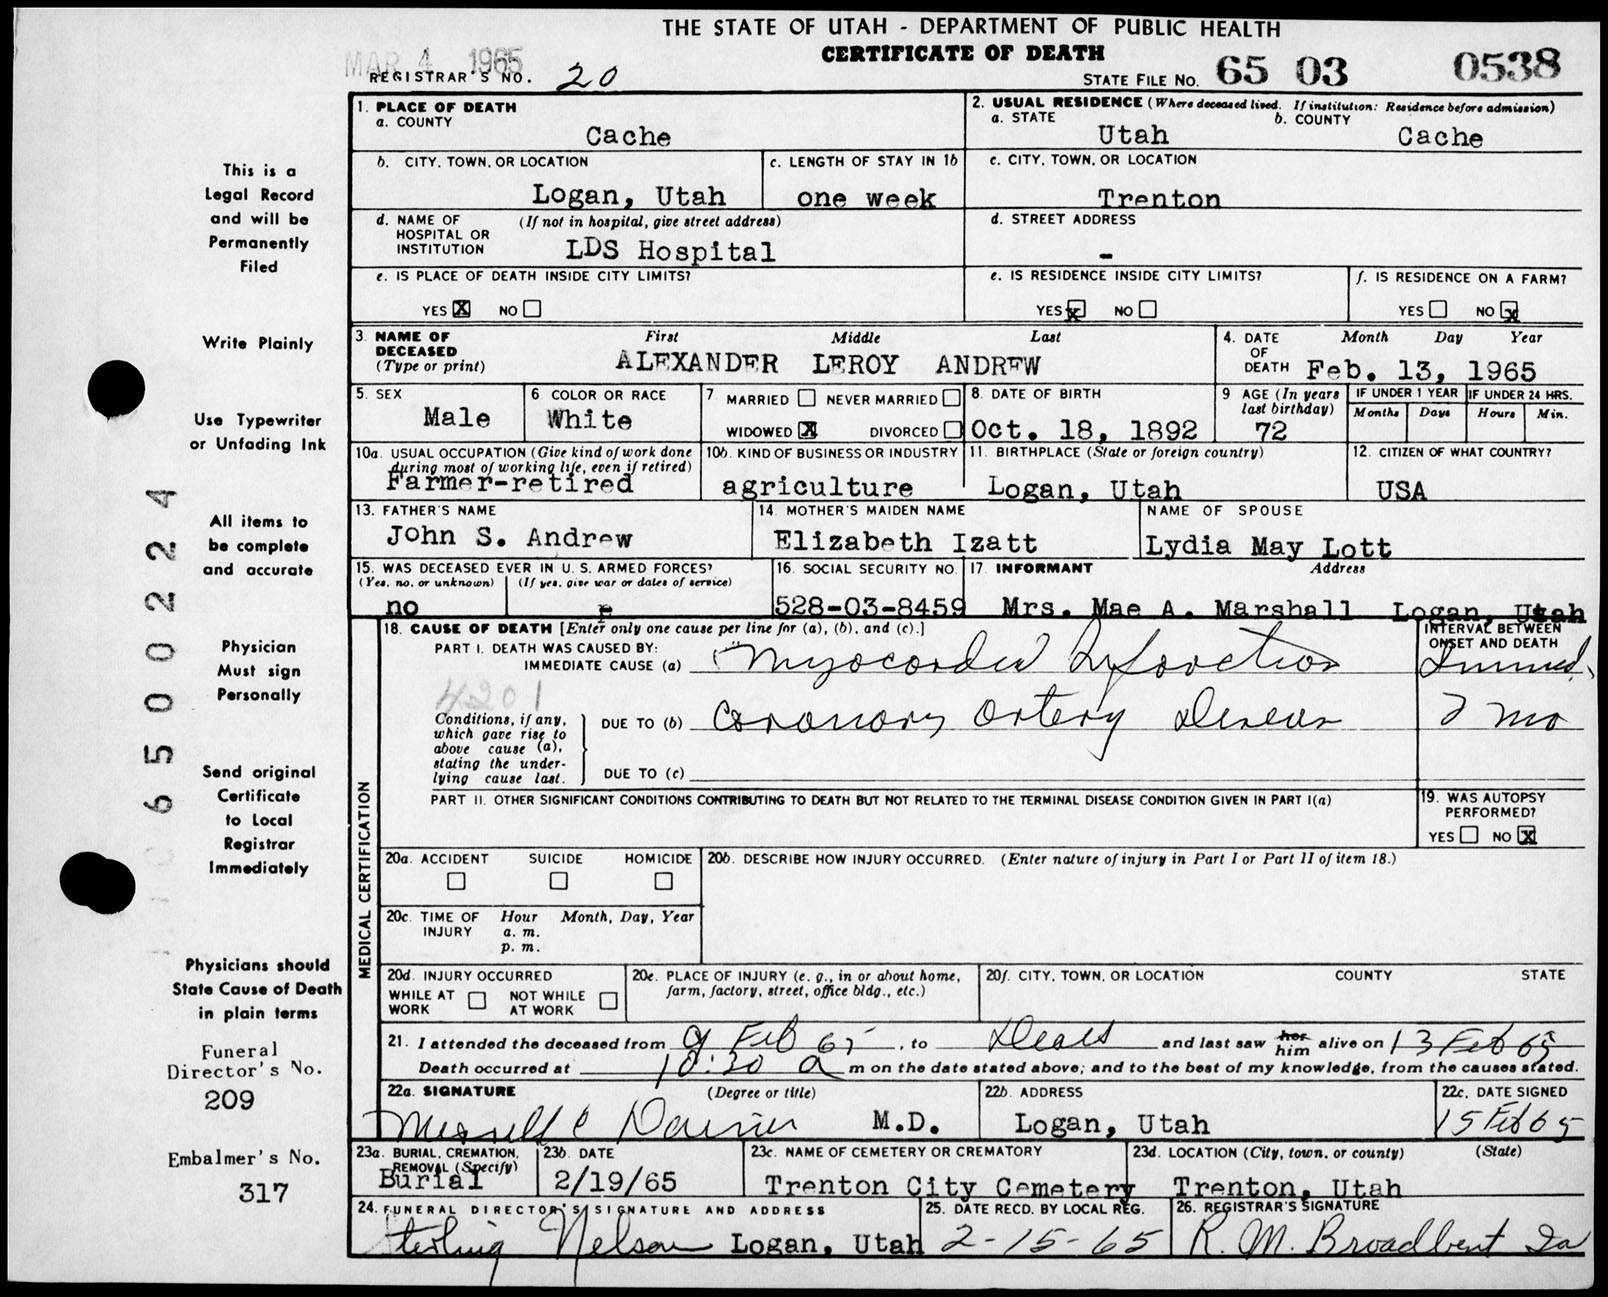 THE STATE OF UTAH - DEPARTMENT OF PUBLIC HEALTH
CERTIFICATE OF DEATH
MAR 4 1965
REGISTRAR'S NO. 20
STATE FILE NO. 65 03 0538
1. PLACE OF DEATH
a. COUNTY
Cache
2. USUAL RESIDENCE (Where deceased lived. If institution: Residence before admission)
a. STATE b. COUNTY
Utah Cache
b. CITY, TOWN, OR LOCATION
Logan, Utah
c. LENGTH OF STAY IN 1b
one week
c. CITY, TOWN, OR LOCATION
Trenton
d. NAME OF HOSPITAL OR INSTITUTION (If not in hospital, give street address)
LDS Hospital
d. STREET ADDRESS
-
e. IS PLACE OF DEATH INSIDE CITY LIMITS?
YES X NO
e. IS RESIDENCE INSIDE CITY LIMITS?
YES X NO
f. IS RESIDENCE ON A FARM?
YES NO X
3. NAME OF DECEASED (Type or print)
First Middle Last
ALEXANDER LEROY ANDREW
4. DATE OF DEATH Month Day Year
Feb. 13, 1965
5. SEX
Male
6. COLOR OR RACE
White
7. MARRIED NEVER MARRIED
WIDOWED X DIVORCED
8. DATE OF BIRTH
Oct. 18, 1892
9. AGE (In years last birthday)
72
IF UNDER 1 YEAR
Months Days
IF UNDER 24 HRS.
Hours Min.
10a. USUAL OCCUPATION (Give kind of work done during most of working life, even if retired)
Farmer-retired
10b. KIND OF BUSINESS OR INDUSTRY
agriculture
11. BIRTHPLACE (State or foreign country)
Logan, Utah
12. CITIZEN OF WHAT COUNTRY?
USA
13. FATHER'S NAME
John S. Andrew
14. MOTHER'S MAIDEN NAME
Elizabeth Izatt
NAME OF SPOUSE
Lydia May Lott
15. WAS DECEASED EVER IN U. S. ARMED FORCES?
(Yes, no, or unknown) (If yes, give war or dates of service)
no
16. SOCIAL SECURITY NO.
528-03-8459
17. INFORMANT Address
Mrs. Mae A. Marshall Logan, Utah
MEDICAL CERTIFICATION
18. CAUSE OF DEATH [Enter only one cause per line for (a), (b), and (c).]
INTERVAL BETWEEN ONSET AND DEATH
PART I. DEATH WAS CAUSED BY:
IMMEDIATE CAUSE (a) Myocardial Infarction Immed.
4201
Conditions, if any, which gave rise to above cause (a), stating the underlying cause last.
DUE TO (b) Coronary Artery Disease 2 mo
DUE TO (c)
PART II. OTHER SIGNIFICANT CONDITIONS CONTRIBUTING TO DEATH BUT NOT RELATED TO THE TERMINAL DISEASE CONDITION GIVEN IN PART I(a)
19. WAS AUTOPSY PERFORMED?
YES NO X
20a. ACCIDENT SUICIDE HOMICIDE
20b. DESCRIBE HOW INJURY OCCURRED. (Enter nature of injury in Part I or Part II of item 18.)
20c. TIME OF INJURY Hour Month, Day, Year
a. m.
p. m.
20d. INJURY OCCURRED
WHILE AT WORK NOT WHILE AT WORK
20e. PLACE OF INJURY (e. g., in or about home, farm, factory, street, office bldg., etc.)
20f. CITY, TOWN, OR LOCATION COUNTY STATE
21. I attended the deceased from 9 Feb 65, to Death and last saw her him alive on 13 Feb 65
Death occurred at 10:20 a m on the date stated above; and to the best of my knowledge, from the causes stated.
22a. SIGNATURE (Degree or title)
Merrill C M.D.
22b. ADDRESS
Logan, Utah
22c. DATE SIGNED
15 Feb 65
23a. BURIAL, CREMATION, REMOVAL (Specify)
Burial
23b. DATE
2/19/65
23c. NAME OF CEMETERY OR CREMATORY
Trenton City Cemetery
23d. LOCATION (City, town, or county) (State)
Trenton, Utah
24. FUNERAL DIRECTOR'S SIGNATURE AND ADDRESS
Sterling Nelson Logan, Utah
25. DATE RECD. BY LOCAL REG.
2-15-65
26. REGISTRAR'S SIGNATURE
R. M. Broadbent
This is a
Legal Record
and will be
Permanently
Filed
Write Plainly
Use Typewriter
or Unfading Ink
All items to
be complete
and accurate
Physician
Must sign
Personally
Send original
Certificate
to Local
Registrar
Immediately
Physicians should
State Cause of Death
in plain terms
Funeral
Director's No.
209
Embalmer's No.
317
06500224